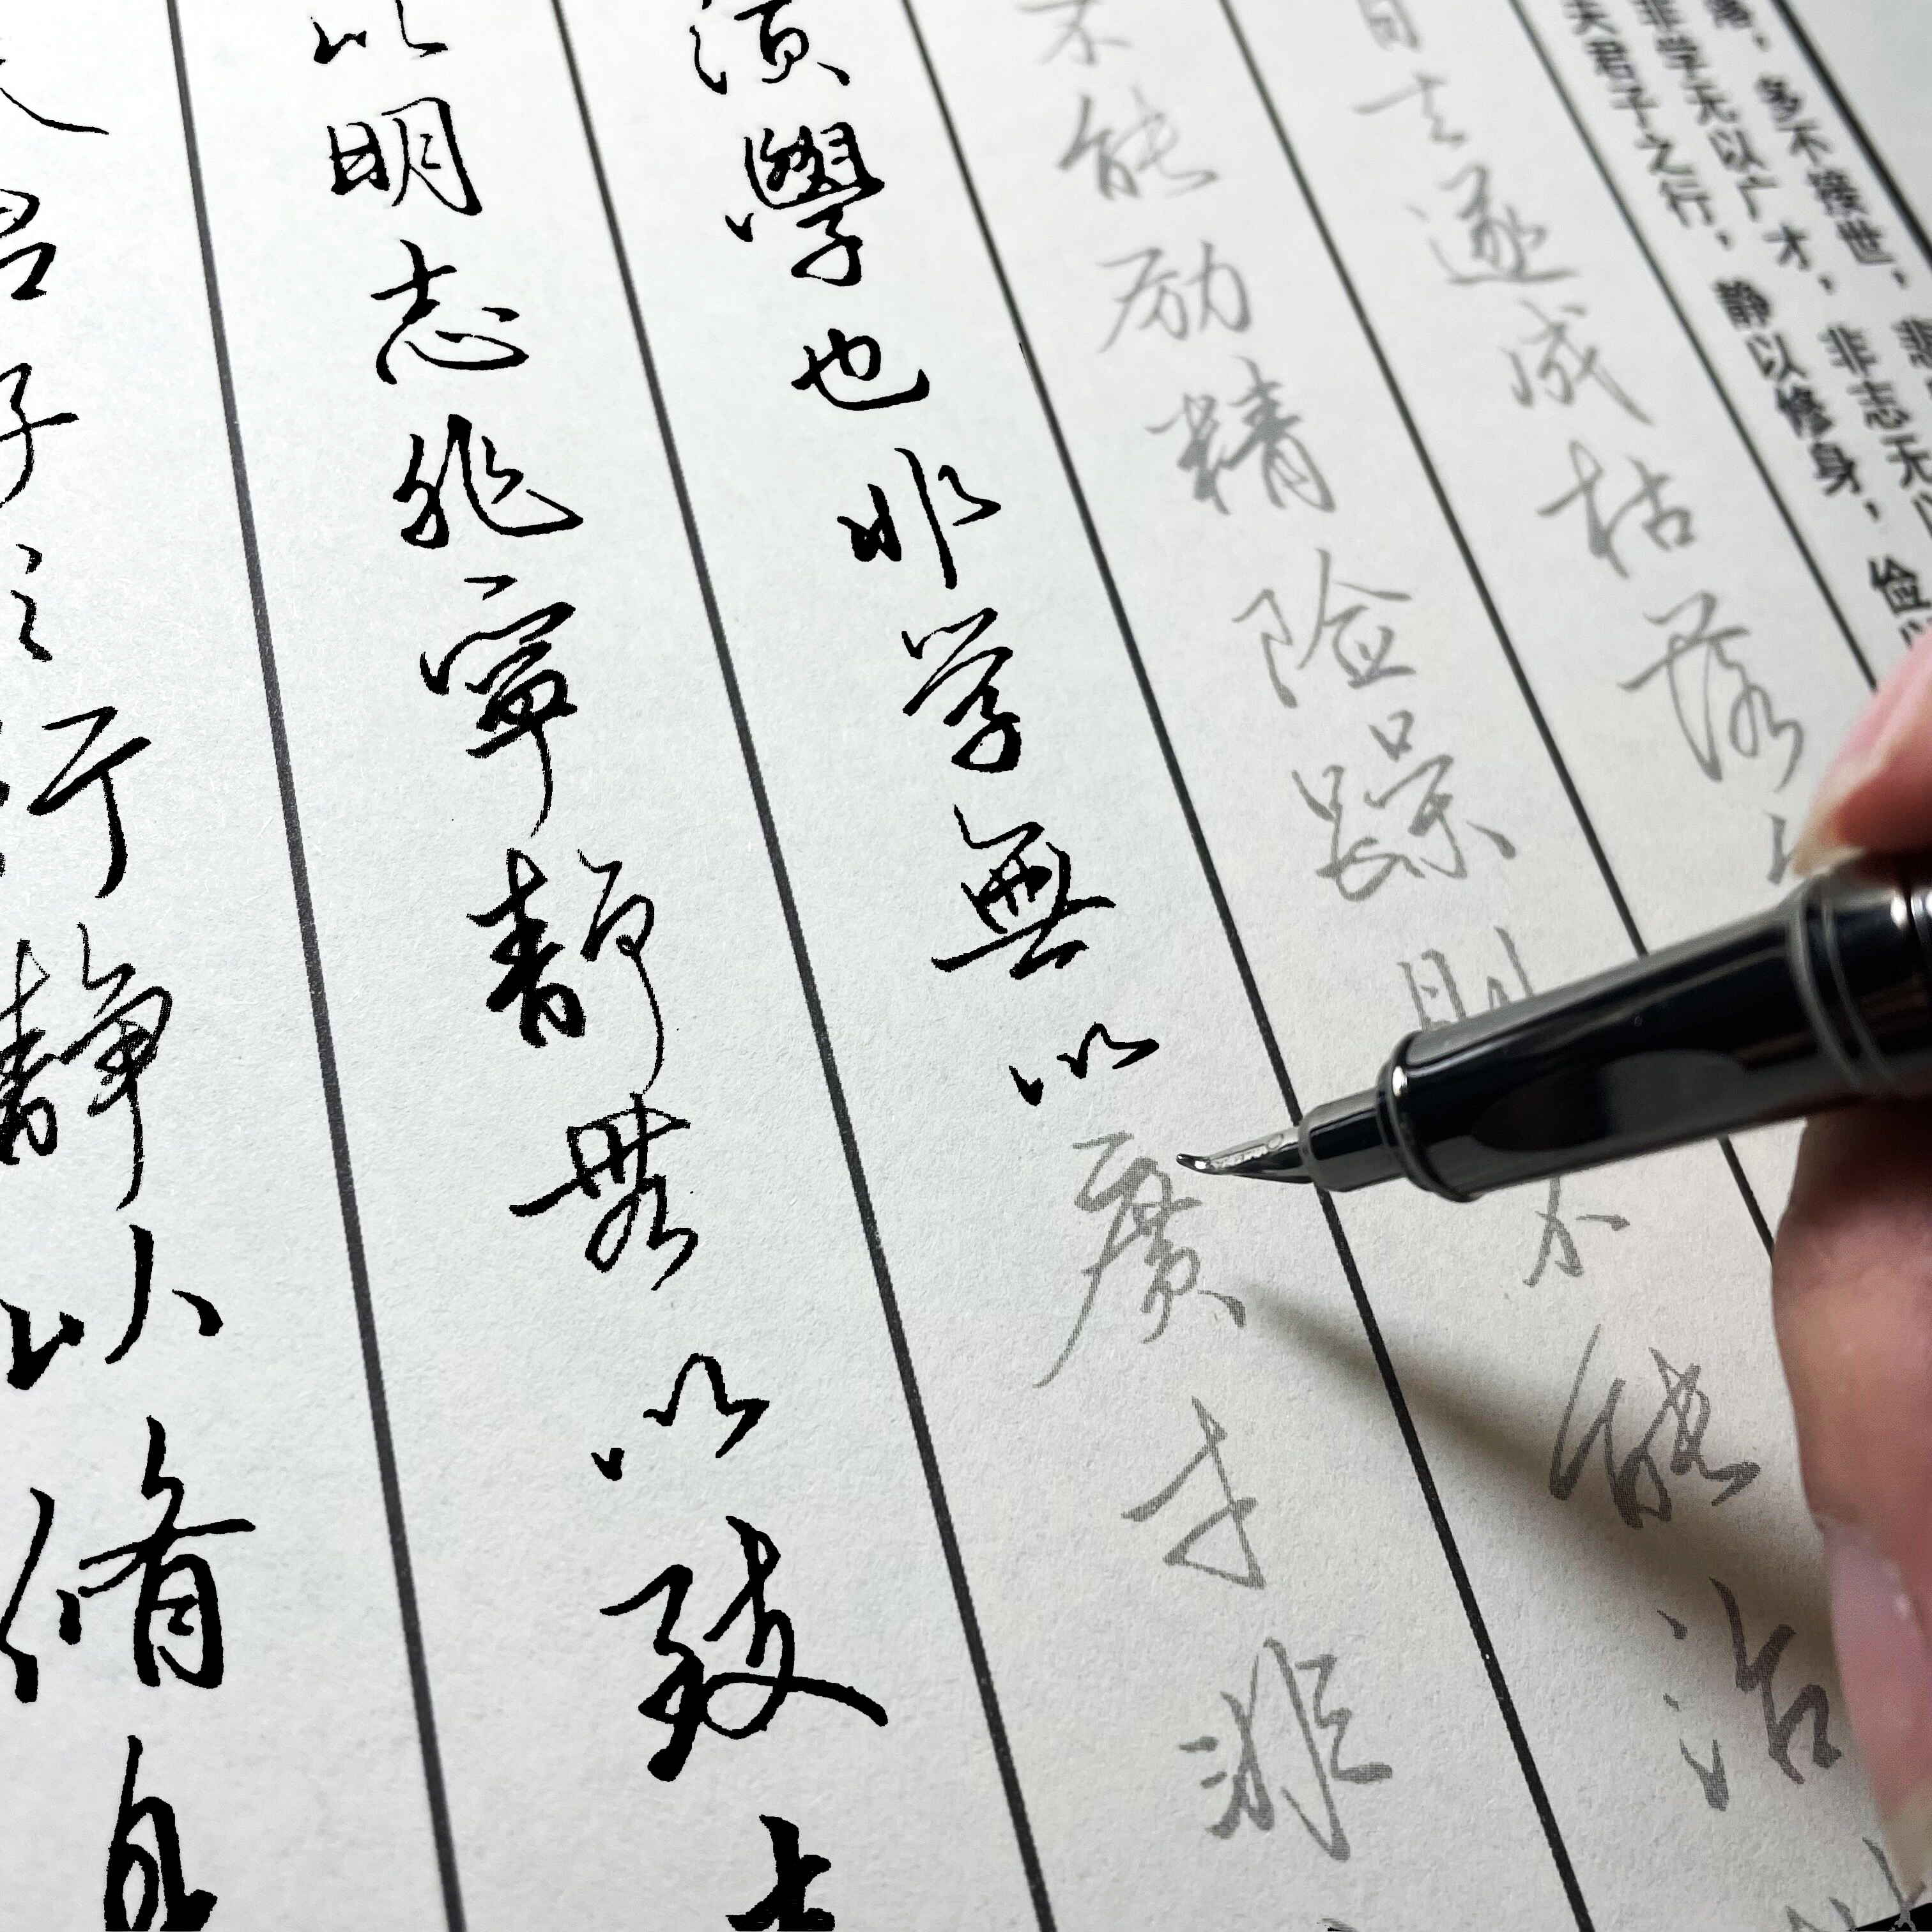 君子之行静以脩身
以明志非寧静無以致
須學也非学無以廣才非
不能励精险躁则不能治
日去遂成枯落
夫君子之行，静以修身，俭以
非学无以广才，非志无以
落，多不接世，悲